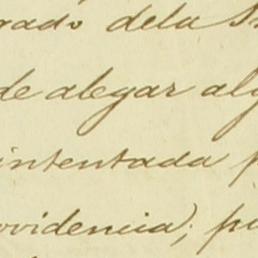 rado dela S
de alegar alg
intentada p
ovidencia; pu